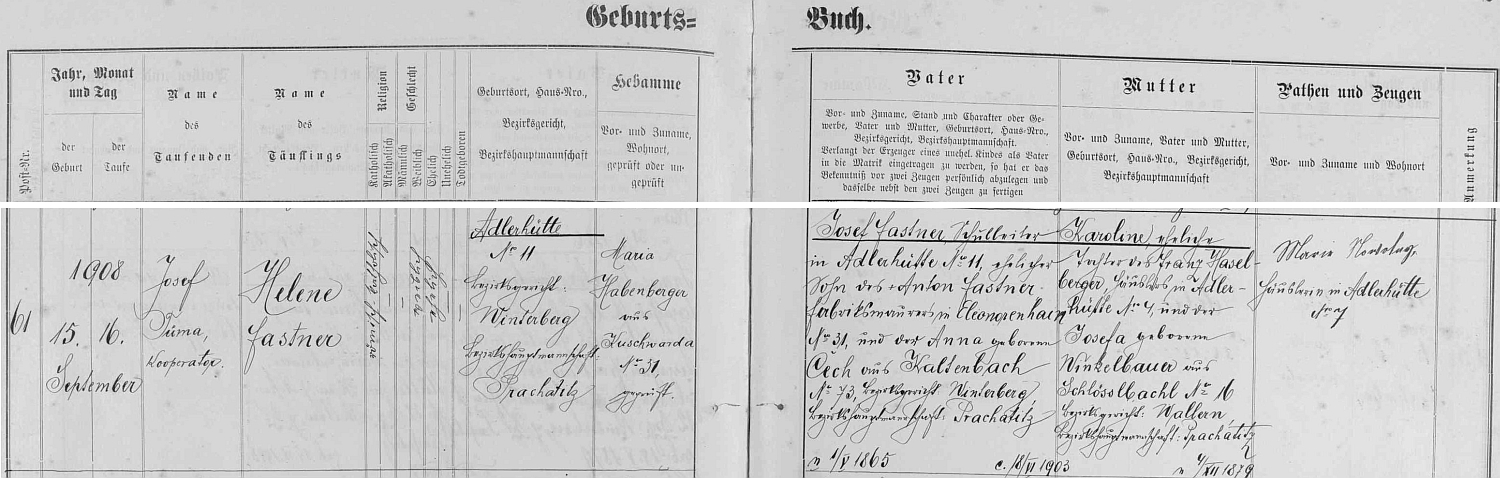 Geburts= Buch.
Post-Nr.
Jahr, Monat
und Tag
der
Geburt
der
Taufe
Name
des
Taufenden
Name
des
Täuflings
Religion
Katholisch
Akatholisch
Geschlecht
Männlich
Weiblich
Ehelich
Unehelich
Todtgeboren
Geburtsort, Haus-Nro.,
Bezirksgericht,
Bezirkshauptmannschaft
Hebamme
Vor- und Zuname,
Wohnort,
geprüft oder un-
geprüft
Vater
Vor- und Zuname, Stand und Charakter oder Ge-
werbe, Vater und Mutter, Geburtsort, Haus-Nro.,
Bezirksgericht, Bezirkshauptmannschaft.
Verlangt der Erzeuger eines unehel. Kindes als Vater
in die Matrik eingetragen zu werden, so hat er das
Bekenntniß vor zwei Zeugen persönlich abzulegen und
dasselbe nebst den zwei Zeugen zu fertigen
Mutter
Vor- und Zuname, Vater und Mutter,
Geburtsort, Haus-Nro., Bezirksgericht,
Bezirkshauptmannschaft
Pathen und Zeugen
Vor- und Zuname und Wohnort
Anmerkung
61
1908
15. 16.
September
Josef
Tůma,
Kooperator.
Helene
Fastner
Adlerhütte
No 11
Bezirksgericht:
Winterberg
Bezirkshauptmannschaft:
Prachatitz
Maria
Habenberger
aus
Kuschwarda
No 31,
geprüft.
Josef Fastner, Schulleiter
in Adlerhütte No 11, ehelicher
Sohn des + Anton Fastner
Fabriksmaurers in Eleonorenhain
No 31, und der Anna geborenen
Čech aus Kaltenbach
No 73, Bezirksgericht Winterberg,
Bezirkshauptmannschaft: Prachatitz
1865
Karoline, eheliche
Tochter des Franz Hasel-
berger, Häuslers in Adler-
hütte No 7, und der
Josefa geborenen
Winkelbauer aus
Schlösslbachl No 16
Bezirksgericht: Wallern,
Bezirkshauptmannschaft: Prachatitz
c. 18/VI 1903
XII 1879
Marie
Häuslerin in Adlerhütte